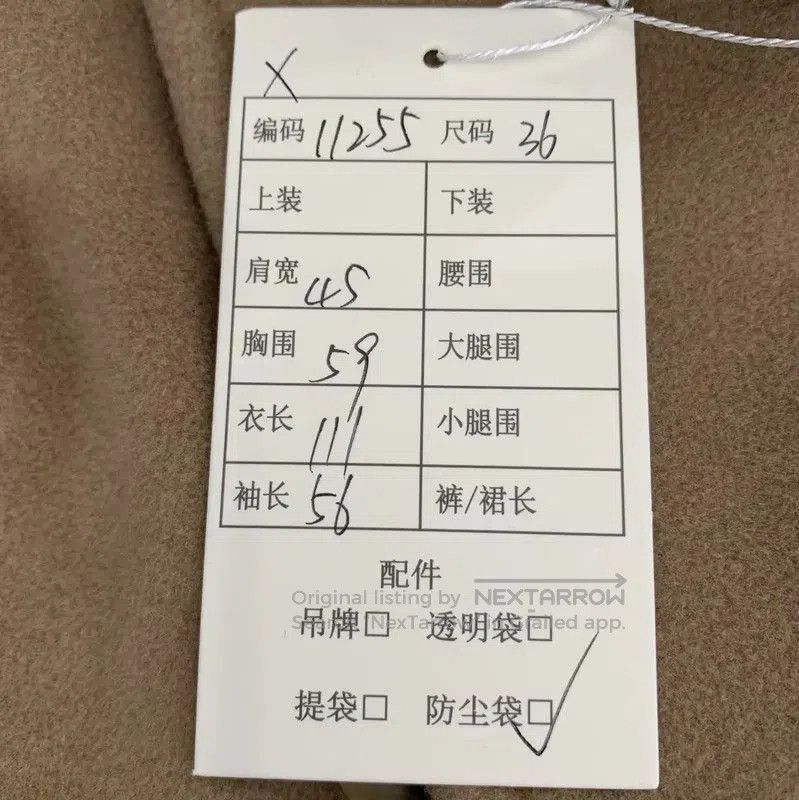 X
编码 11255 尺码 36
上装 下装
肩宽 45 腰围
胸围 59 大腿围
衣长 111 小腿围
袖长 56 裤/裙长
配件
Original listing by NEXTARROW
吊牌□ 透明袋□
提袋□ 防尘袋□✓